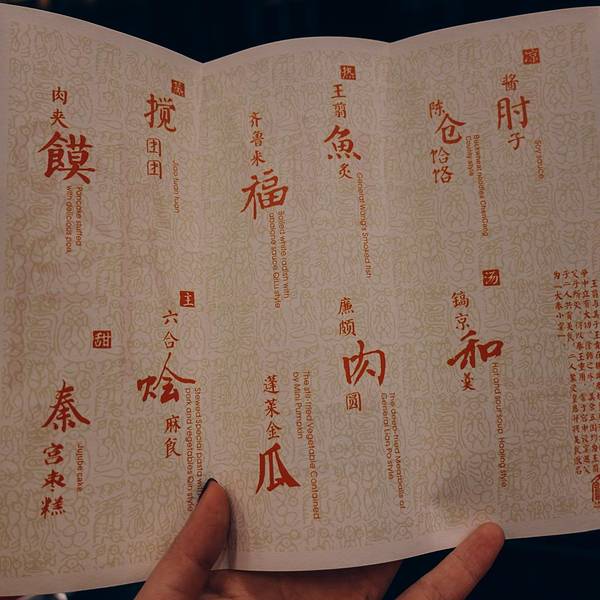 凉
酱肘子
Soy sauce
陈仓饸饹
Buckwheat noodles ChenCang
County style
汤
镐京和羹
Hot and sour soup Haojing style
热
王翦魚炙
General Wang's Smoked fish
廉颇肉圆
The deep-fried Meatballs of
General Lian Po style
齐鲁米福
Boiled white radish with
abalone sauce QiLu style
蓬莱金瓜
The stir-fried Vegetable Contained
by Mini Pumpkin
搅团团
Jiao tuan tuan
主
六合烩麻食
Stewed Special pasta with
pork and vegetables Qin style
肉夹饃
Pancake stuffed
with delicious pork
甜
秦宫枣糕
Jujube cake